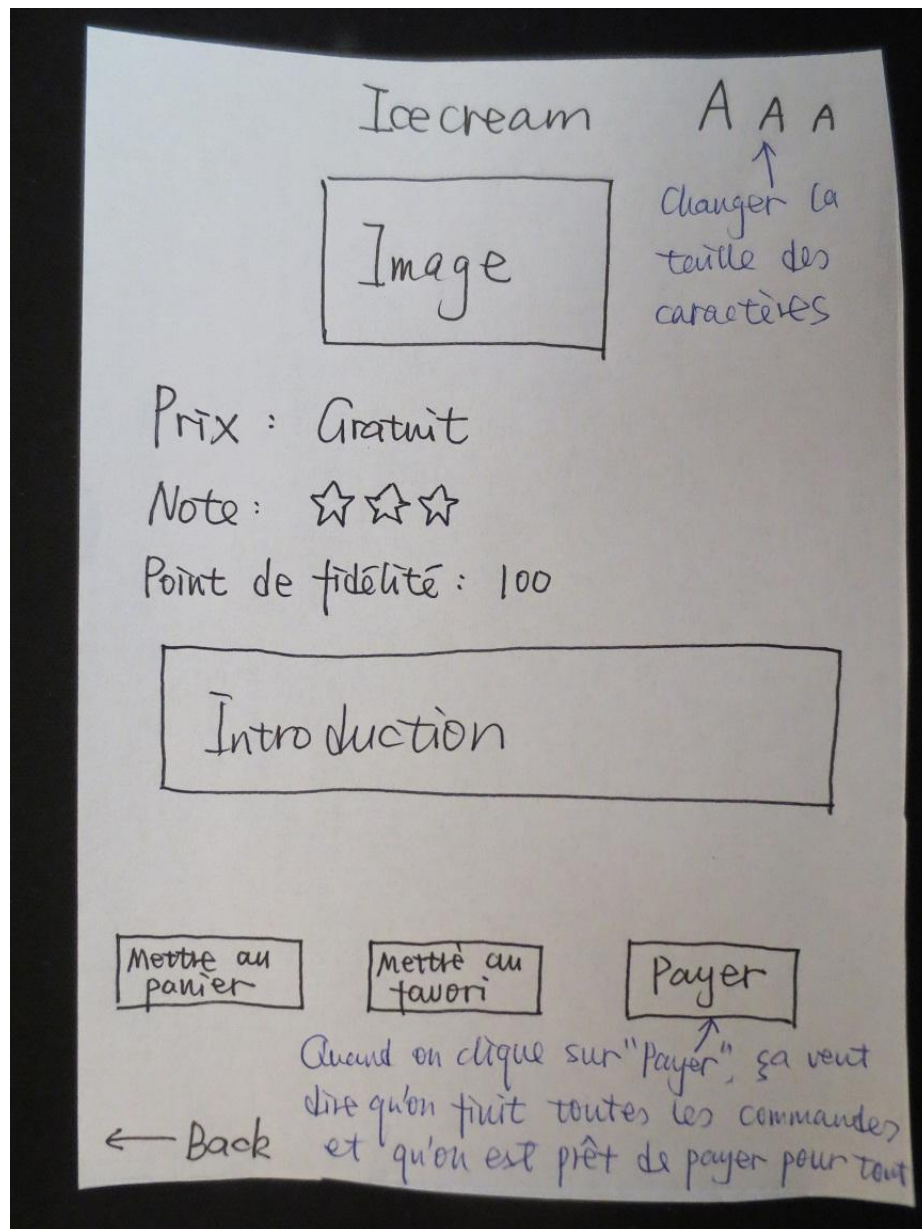 Icecream
A A A
Changer la
taille des
caractères
Image
Prix : Gratuit
Note : ☆☆☆
Point de fidélité : 100
Introduction
Mettre au
panier
Mettre au
favori
Payer
Quand on clique sur "Payer", ça veut
dire qu'on finit toutes les commandes
et qu'on est prêt de payer pour tout
← Back